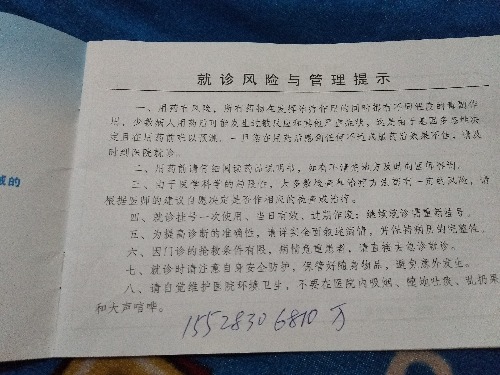 就诊风险与管理提示
一、用药有风险，所有药物在发挥治疗作用的同时都有不同程度的毒副作
用，少数病人用药后可能发生过敏反应和其他严重症状，
定且在用药前难以预测，一旦你在用药后感到任何不适或服药后效果不佳，请及
时到医院就诊。
二、用药前请仔细阅读药品说明书，如有不清楚地方及时向医师咨询。
三、由于医学科学的局限性，大多数检查和治疗方法都有一定的风险，请
根据医师的建议自愿决定是否作相应的检查或治疗。
四、就诊挂号一次使用，当日有效，过期作废；继续就诊请重新挂号。
五、为提高诊断的准确性，请详实全面叙述病情，并保持病历的完整性。
六、因门诊的抢救条件有限，病情危重患者，请直接去急诊就诊。
七、就诊时请注意自身安全防护，保管好随身物品，避免意外发生。
八、请自觉维护医院环境卫生，不要在医院内吸烟、随地吐痰、乱扔果
和大声喧哗。
15528306810 万
域的